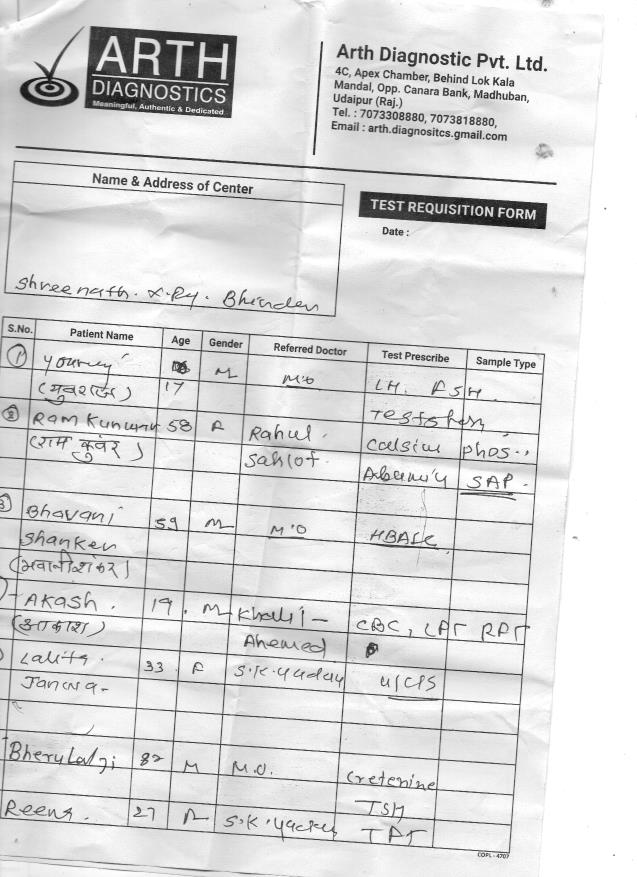 ARTH
DIAGNOSTICS
Meaningful, Authentic & Dedicated
Arth Diagnostic Pvt. Ltd.
4C, Apex Chamber, Behind Lok Kala
Mandal, Opp. Canara Bank, Madhuban,
Udaipur (Raj.)
Tel. : 7073308880, 7073818880,
Email : arth.diagnositcs.gmail.com
Name & Address of Center
TEST REQUISITION FORM
Date :
Shreenath. X.Ry. Bhinder
S.No. Patient Name Age Gender Referred Doctor Test Prescribe Sample Type
1 M M'O LH. FSH.
(युवराज) 17
2 Ram Kunwar 58 F Rahul. Calsium phos..
(राम कुंवर) SAP.
3 Bhavani 59 M M'O HBA1C
Shanker
(भवानीशंकर)
Akash. 19. M Khalil- CBC, LFT RFT
(आकाश) Ahemed
Lalita. 33. F S.K.Yadav
Bherulalji 82 M M.O. Cretenine
TSH
Reena. 27 F S.K. Yadav TFT
COPL - 4707